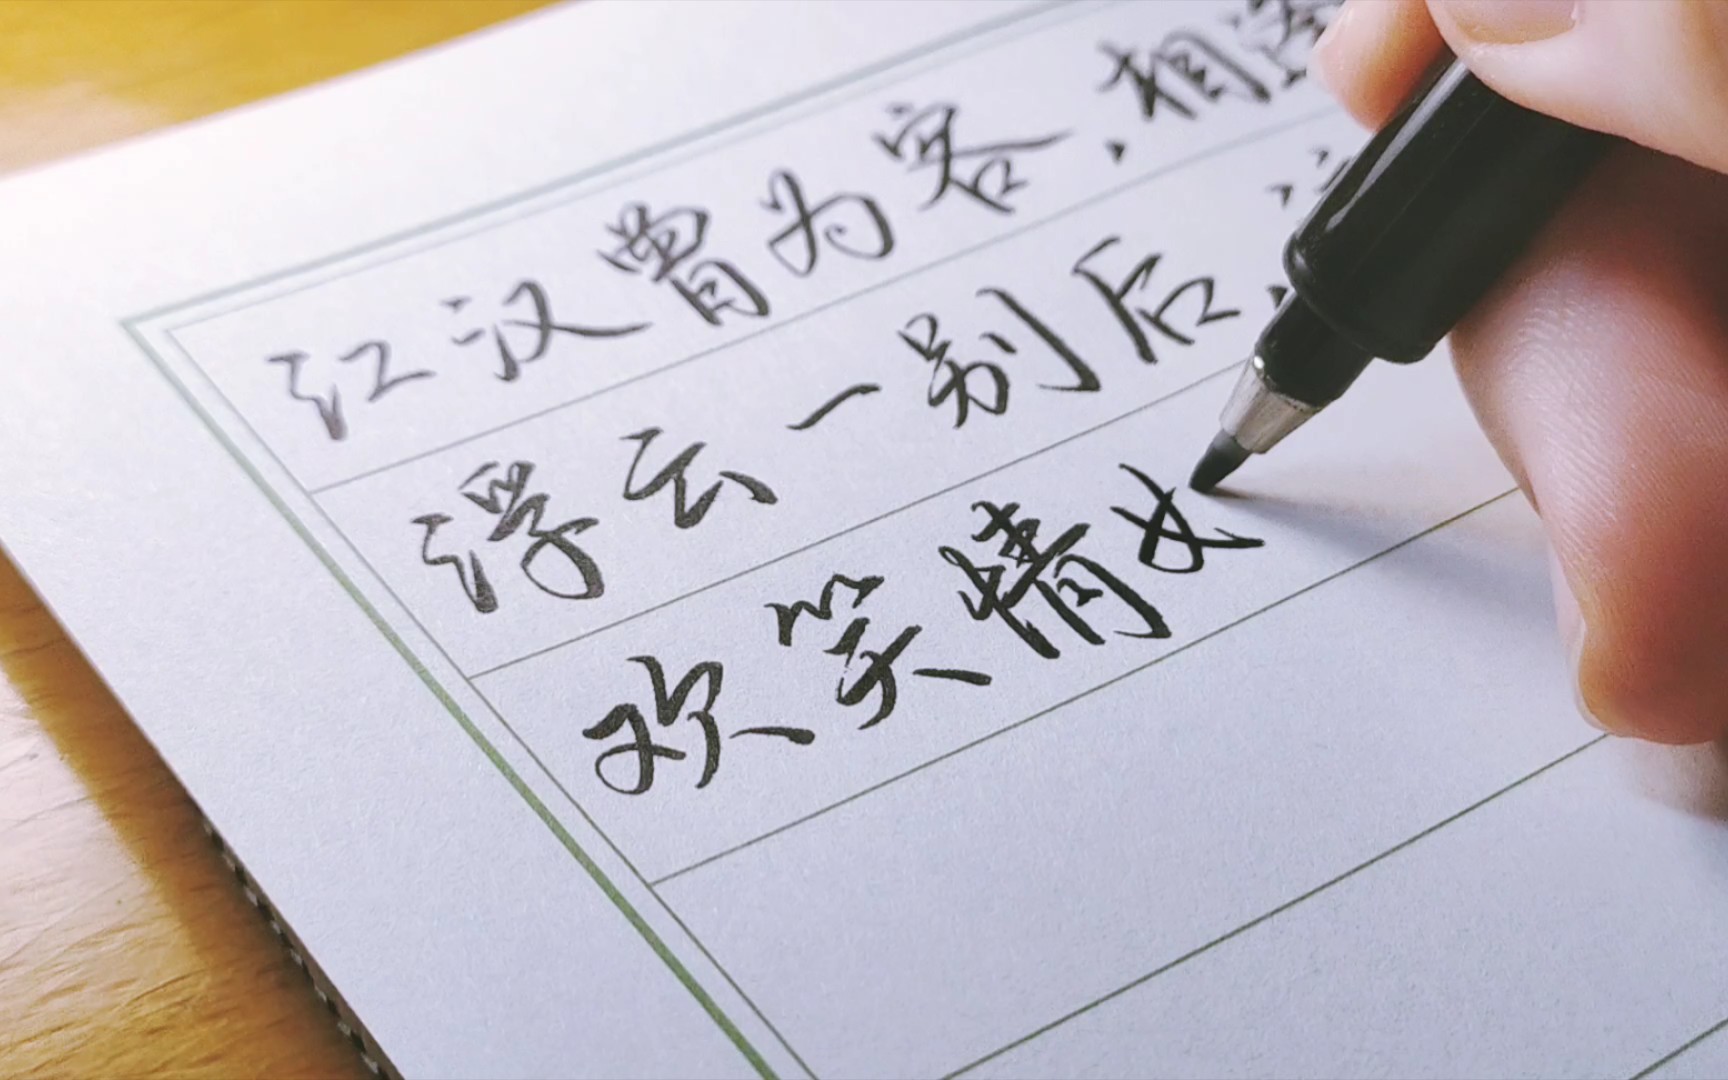 江汉曾为客，相逢
浮云一别后，
欢笑情如